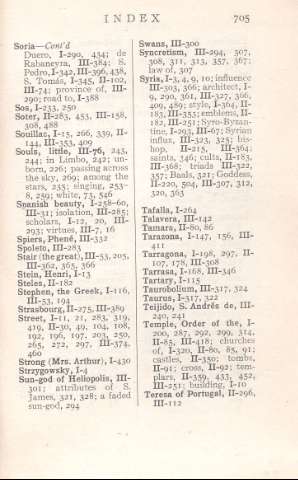 INDEX 705
Soria—Cont'd
Duero, I-290, 434; de
Rabaneyra, III-384; S.
Pedro, I-342, III-396, 438,
S. Tomás, I-345, II-102,
III-74; province of, III-
290; road to, I-388
Sos, I-233, 250
Soter, II-283, 453, III-158,
308, 488
Souillas, I-15, 266, 339, II-
144, III-353, 409
Souls, little, III-76, 243,
244; in Limbo, 242; un-
born, 226; passing across
the sky, 269; among the
stars, 235; singing, 253-
8, 259; white, 73, 546
Spanish beauty, I-258-60,
III-31; isolation, III-285;
scholars, I-12, 20, III-
293; virtues, III-7, 16
Spiers, Phené, III-332
Spoleto, III-283
Stair (the great), III-53, 205,
III-362, 365, 366
Stein, Henri, I-13
Steles, II-182
Stephen, the Greek, I-116,
III-53, 194
Strasbourg, II-275, III-389
Street, I-11, 21, 283, 319,
419, II-30, 49, 104, 108,
192, 196, 197, 203, 250,
265, 272, 297, III-374,
460
Strong (Mrs. Arthur), I-430
Strzygowsky, I-4
Sun-god of Heliopolis, III-
301; attributes of S.
James, 321, 328; a faded
sun-god, 294
Swans, III-300
Syncretism, III-294, 307,
308, 311, 313, 357, 367;
law of, 307
Syria, I-3, 4, 9, 10; influence
III-303, 366; architect, I-
9, 290, 361, III-327, 366,
409, 489; style, I-364, II-
183, III-355; emblems, II-
182, III-251; Syro-Byzan-
tine, I-293, III-67; Syrian
influx, III-323, 325; bis-
hop, II-215, III-364;
saints, 346; cults, II-183,
III-368; triads III-322,
357; Baals, 321; Goddess,
II-220, 504, III-307, 312,
320, 363
Tafalla, I-264
Talavera, III-142
Tamara, II-80, 86
Tarazona, I-147, 156, III-
411
Tarragona, I-198, 297, II-
107, 178, III-308
Tarrasa, I-168, III-346
Tartary, I-115
Taurobolium, III-317, 324
Taurus, I-317, 322
Teijido, S. Andrés de, III-
240, 241
Temple, Order of the, I-
200, 287, 292, 299, 314,
II-85, III-418; churches
of, I-320, II-80, 85, 91;
castles, II-350; tombs,
II-91; cross, II-92; tem-
plars, II-359, 453, 452,
III-251; building, I-10
Teresa of Portugal, II-296,
III-112